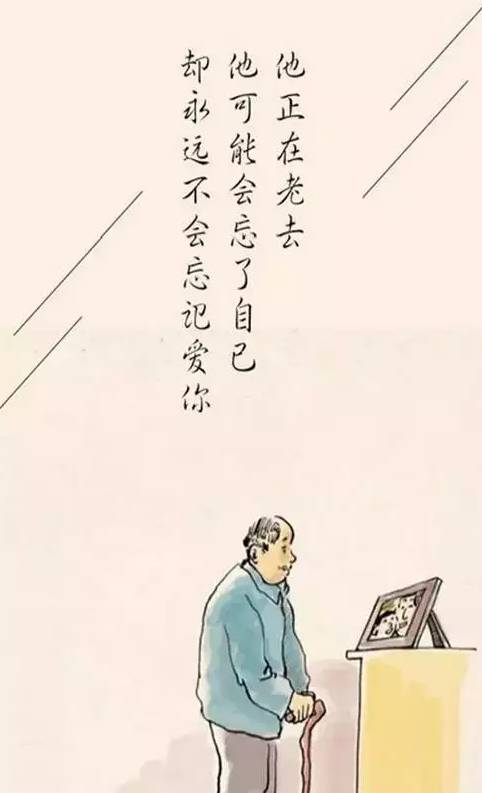 他正在老去
他可能会忘了自己
却永远不会忘记爱你